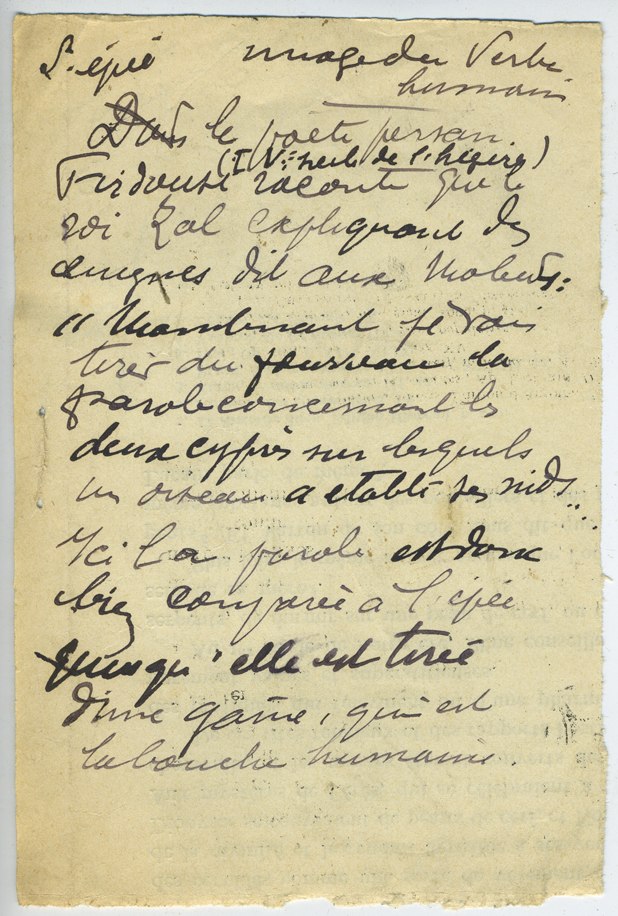 L'épée image du Verbe
humain
Dans le poète persan
(IVe siecle de l'hégire)
Firdousi raconte que le
roi Zal expliquant des
enigmes dit aux Mobeds:
" Maintenant je vais
tirer du fourreau la
parole concernant les
deux cyprès sur lesquels
un oiseau a etabli ses nids"
Ici la parole est donc
bien comparée à l'épée
puisqu'elle est tirée
d'une gaine, qui est
la bouche humaine